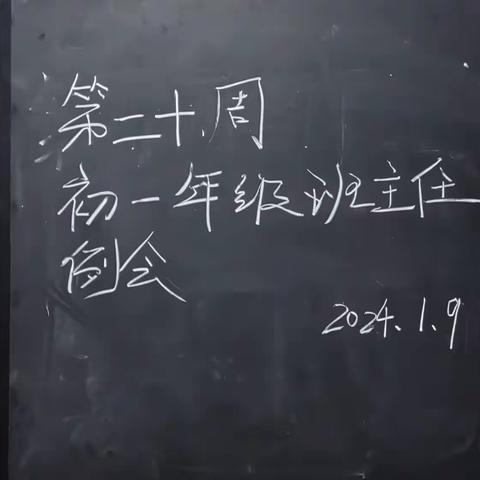 第二十周
初一年级班主任
例会
2024.1.9